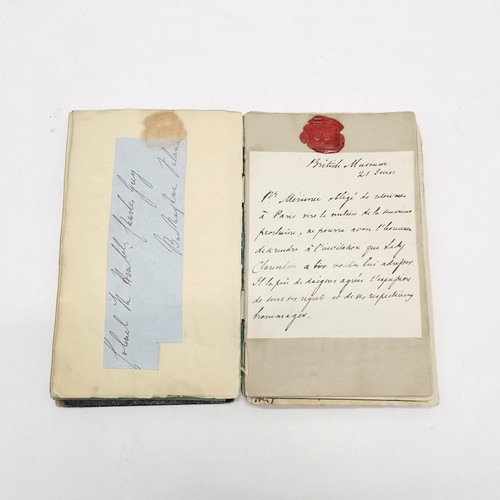 Colonel The Honble Charles Grey
British Museum
21 Juin
Mr Mérimée obligé de retourner
à Paris vers le milieu de la semaine
prochaine, ne pourra avoir l'honneur
de se rendre à l'invitation que Lady
Clarendon a bien voulu lui adresser.
Il la prie de daigner agréer l'expression
de tous ses regrets et de ses respectueux
hommages.